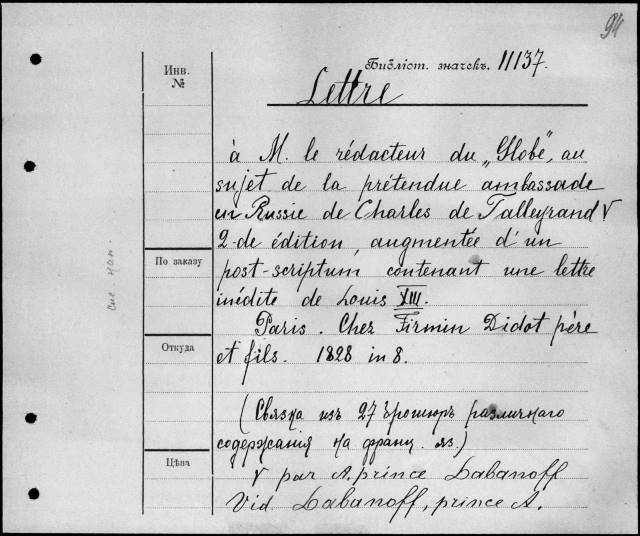 94
Библіот. значекъ. 11137.
Инв.
№
Lettre
à M. le rédacteur du „Globe", au
sujet de la prétendue ambassade
en Russie de Charles de Talleyrand V
2-de édition, augmentée d'un
По заказу
post-scriptum contenant une lettre
inédite de Louis XIII.
Paris. Chez Firmin Didot père
Откуда
et fils. 1828 in 8.
(Связка изъ 27 брошюръ различнаго
содержания на франц. яз.)
Цѣна
V par A. prince Labanoff
Vid. Labanoff, prince A.